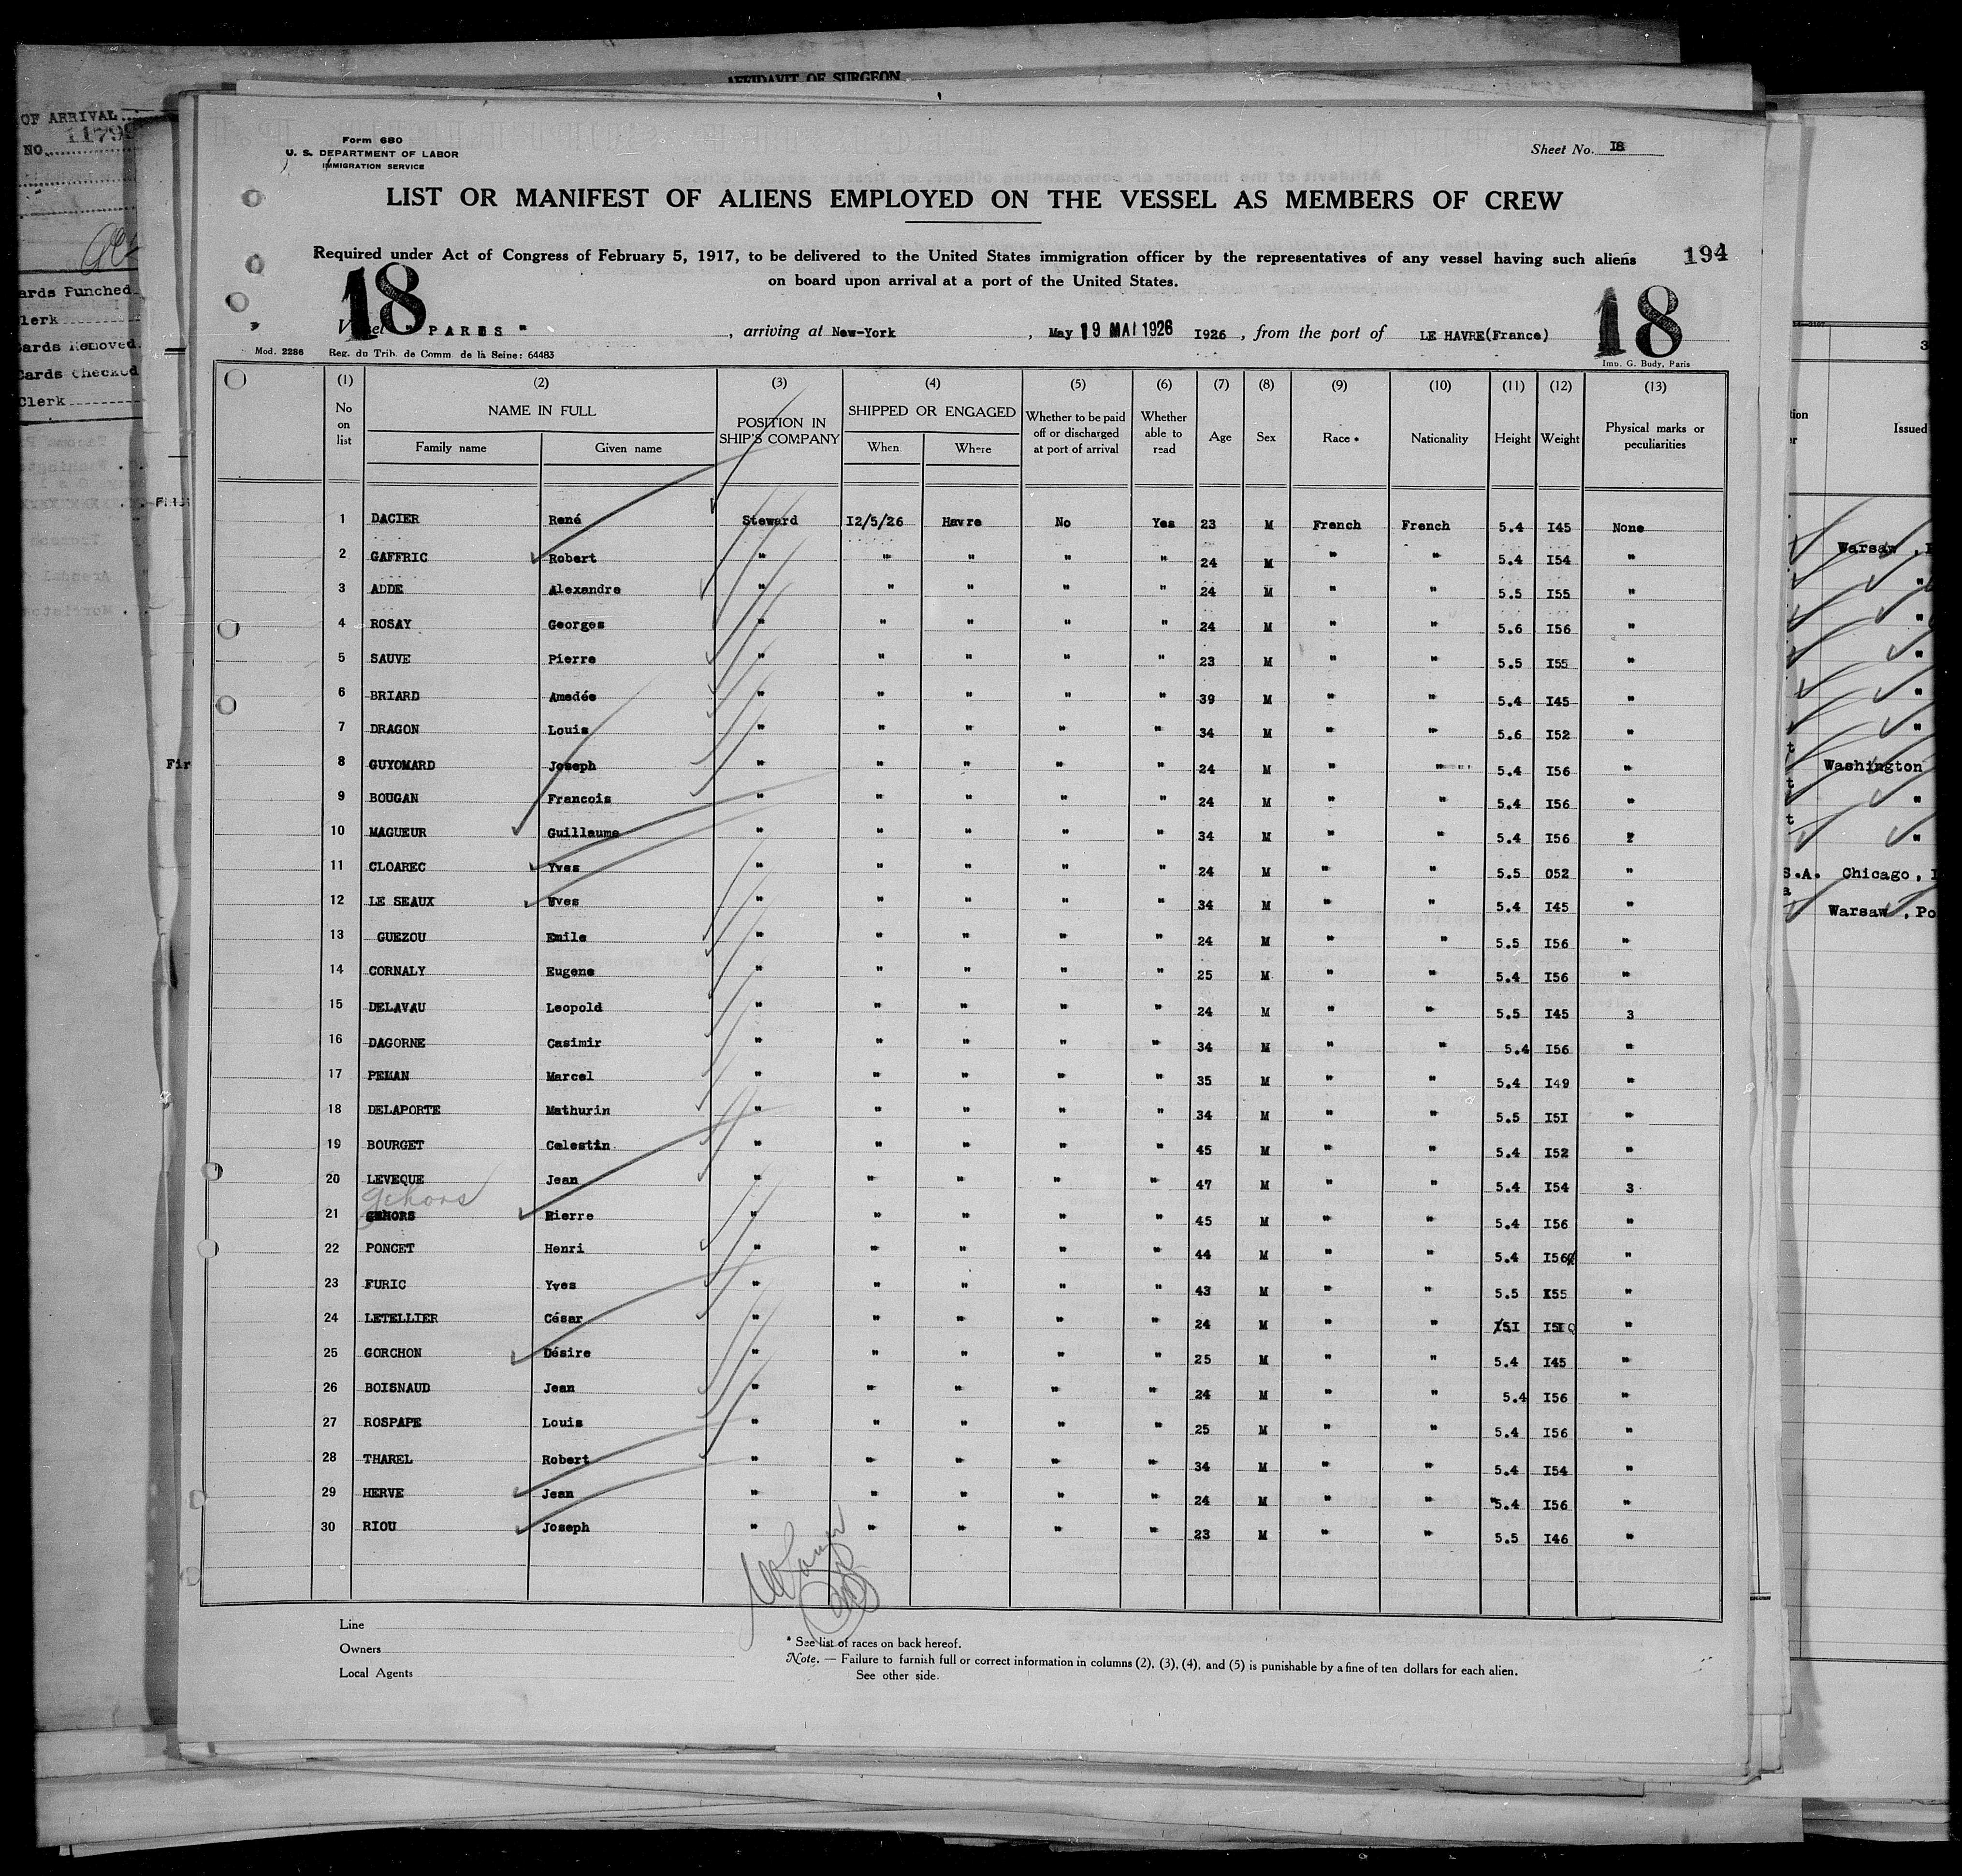 AFFIDAVIT OF SURGEON
OF ARRIVAL
NO. 11799
ards Punched
lerk
ards Removed
ards Checked
Clerk
Form 680
U. S. DEPARTMENT OF LABOR
IMMIGRATION SERVICE
Sheet No. I8
LIST OR MANIFEST OF ALIENS EMPLOYED ON THE VESSEL AS MEMBERS OF CREW
Required under Act of Congress of February 5, 1917, to be delivered to the United States immigration officer by the representatives of any vessel having such aliens 194
on board upon arrival at a port of the United States.
18 18
Vessel " PARIS " , arriving at New-York , May 19 MAI 1926 I926 , from the port of LE HAVRE(France)
Mod. 2286 Reg. du Trib. de Comm de la Seine: 64483 Imp. G. Budy, Paris
(1) (2) (3) (4) (5) (6) (7) (8) (9) (10) (11) (12) (13)
No on list NAME IN FULL Family name Given name POSITION IN SHIP'S COMPANY SHIPPED OR ENGAGED When Where Whether to be paid off or discharged at port of arrival Whether able to read Age Sex Race * Nationality Height Weight Physical marks or peculiarities
1 DACIER René Steward I2/5/26 Havre No Yes 23 M French French 5.4 I45 None
2 GAFFRIC Robert " " " " " 24 M " " 5.4 I54 "
3 ADDE Alexandre " " " " " 24 M " " 5.5 I55 "
4 ROSAY Georges " " " " " 24 M " " 5.6 I56 "
5 SAUVE Pierre " " " " " 23 M " " 5.5 I55 "
6 BRIARD Amedée " " " " " 39 M " " 5.4 I45 "
7 DRAGON Louis " " " " " 34 M " " 5.6 I52 "
8 GUYOMARD Joseph " " " " " 24 M " " 5.4 I56 "
9 BOUGAN Francois " " " " " 24 M " " 5.4 I56 "
10 MAGUEUR Guillaume " " " " " 34 M " " 5.4 I56 2
11 CLOAREC Yves " " " " " 24 M " " 5.5 052 "
12 LE SEAUX Yves " " " " " 34 M " " 5.4 I45 "
13 GUEZOU Emile " " " " " 24 M " " 5.5 I56 "
14 CORNALY Eugene " " " " " 25 M " " 5.4 I56 "
15 DELAVAU Leopold " " " " " 24 M " " 5.5 I45 3
16 DAGORNE Casimir " " " " " 34 M " " 5.4 I56 "
17 PEMAN Marcel " " " " " 35 M " " 5.4 I49 "
18 DELAPORTE Mathurin " " " " " 34 M " " 5.5 I5I "
19 BOURGET Celestin " " " " " 45 M " " 5.4 I52 "
20 LEVEQUE Jean " " " " " 47 M " " 5.4 I54 3
Gehors
21 GEHORS Pierre " " " " " 45 M " " 5.4 I56 "
22 PONCET Henri " " " " " 44 M " " 5.4 I56 "
23 FURIC Yves " " " " " 43 M " " 5.5 I55 "
24 LETELLIER César " " " " " 24 M " " I5I "
25 GORCHON Désire " " " " " 25 M " " 5.4 I45 "
26 BOISNAUD Jean " " " " " 24 M " " 5.4 I56 "
27 ROSPAPE Louis " " " " " 25 M " " 5.4 I56 "
28 THAREL Robert " " " " " 34 M " " 5.4 I54 "
29 HERVE Jean " " " " " 24 M " " "5.4 I56 "
30 RIOU Joseph " " " " " 23 M " " 5.5 I46 "
Line
Owners
Local Agents
* See list of races on back hereof.
Note. — Failure to furnish full or correct information in columns (2), (3), (4), and (5) is punishable by a fine of ten dollars for each alien.
See other side.
Issued
Warsaw
Washington
S.A. Chicago,
Warsaw , Po